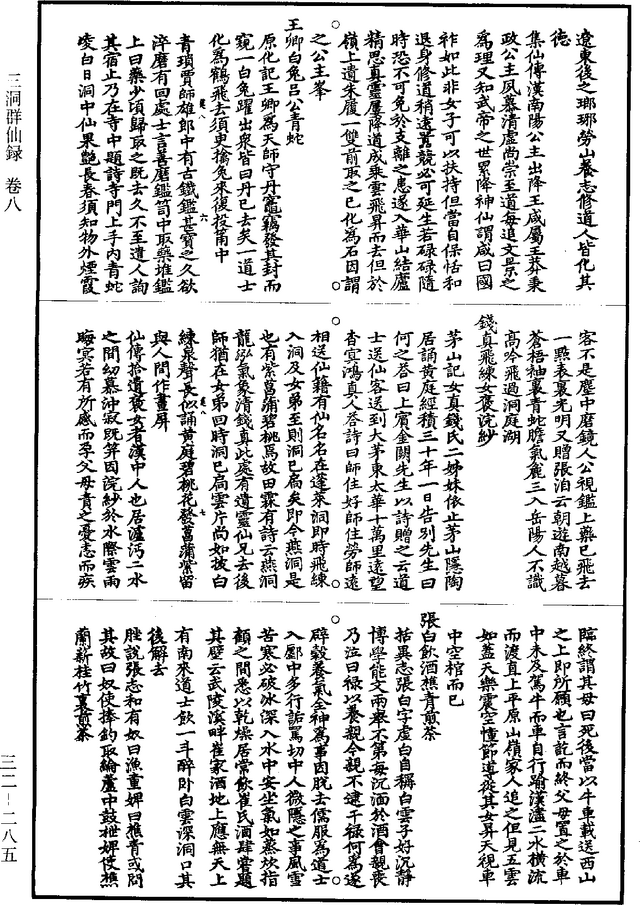 三洞群仙録　卷八
遼東後之瑯琊勞山養志修道人皆化其
德
集仙傳漢南陽公主出降王咸屬王莽秉
政公主夙慕清虛尚崇至道每追文景之
爲理又知武帝之世累降神仙謂咸曰國
祚如此非女子可以扶持但當自保恬和
退身修道稍遠囂競必可延生若碌碌隨
時恐不可免於支離之患遂入華山結廬
精思真靈屢降道成乘雲飛昇而去但於
嶺上遺朱履一雙前取之已化爲石因謂
之公主峯
王卿白兔吕公青蛇
原化記王卿爲天師守丹竈竊發其封而
窺一白兔躍出衆皆曰丹已去矣一道士
化爲鶴飛去須史擒兔來復投甬中
青瑣賈師雄郎中有古鐵鑑甚寶之久欲
淬磨有回處士言善磨鑑笥中取藥堆鑑
上曰藥少頃歸取之既去久不至遣人詢
其宿止乃在寺中題詩寺門上手內青蛇
凌白日洞中仙果艶長春須知物外煙霞
客不是塵中磨鏡人公視鑑上藥已飛去
一點表裏光明又贈張洎云朝遊南越暮
蒼梧袖裏青蛇膽氣麄三入岳陽人不識
高吟飛過洞庭湖
錢真飛練女褒浣紗
茅山記女真錢氏二姊妹依止茅山隱陶
居誦黄庭經積三十年一日告別先生曰
何之荅曰上賓金闕先生以詩贈之云道
士送仙客送到大茅東太華十萬里遠望
杳冥鴻真人荅詩曰師住好師住勞師遠
相送仙籍有仙名名在蓬萊洞即時飛練
入洞及女弟至則洞已扃矣即今燕洞是
也有紫菖蒲碧桃焉故田霖有詩云燕洞
龍泓氣象清錢真此處有遺靈仙兄去後
師猶在女弟回時洞已扃雲片尚如披白
練泉聲長似誦黄庭碧桃花發菖蒲紫留
與人間作畫屏
仙傳拾遺褒女者漢中人也居漢沔二水
之間幼慕沖寂既笄因浣紗於水際雲雨
晦冥若有所感而孕父母責之憂恚而疾
臨終謂其母曰死後當以牛車載送西山
之上即所願也言訖而終父母置之於車
中未及駕牛而車自行踰漢瀘二水橫流
而渡直上平原山嶺家人追之但見五雲
如蓋天樂震空幢節導從其女昇天視車
中空棺而已
張白飲酒樵青煎茶
括異志張白字虛白自稱白雲子好沉靜
博學能文兩舉不第每沉湎於酒會親喪
乃泣曰禄以養親今親不逮干禄何爲遂
辟穀養氣全神爲事因脱去儒服爲道士
入鄽中多行詬罵切中人微隱之事風雪
苦寒必破冰深入水中安坐氣如蒸炊指
顧之間悉以乾燥居常飲崔氏酒肆嘗題
其壁云武陵溪畔崔家酒地上應無天上
有南來道士飲一斗醉卧白雲深洞口其
後解去
脞說張志和有奴曰漁童婢曰樵青或問
其故曰奴使捧釣取綸蘆中鼓枻婢使樵
蘭薪桂竹裏煎茶
三二-二八五